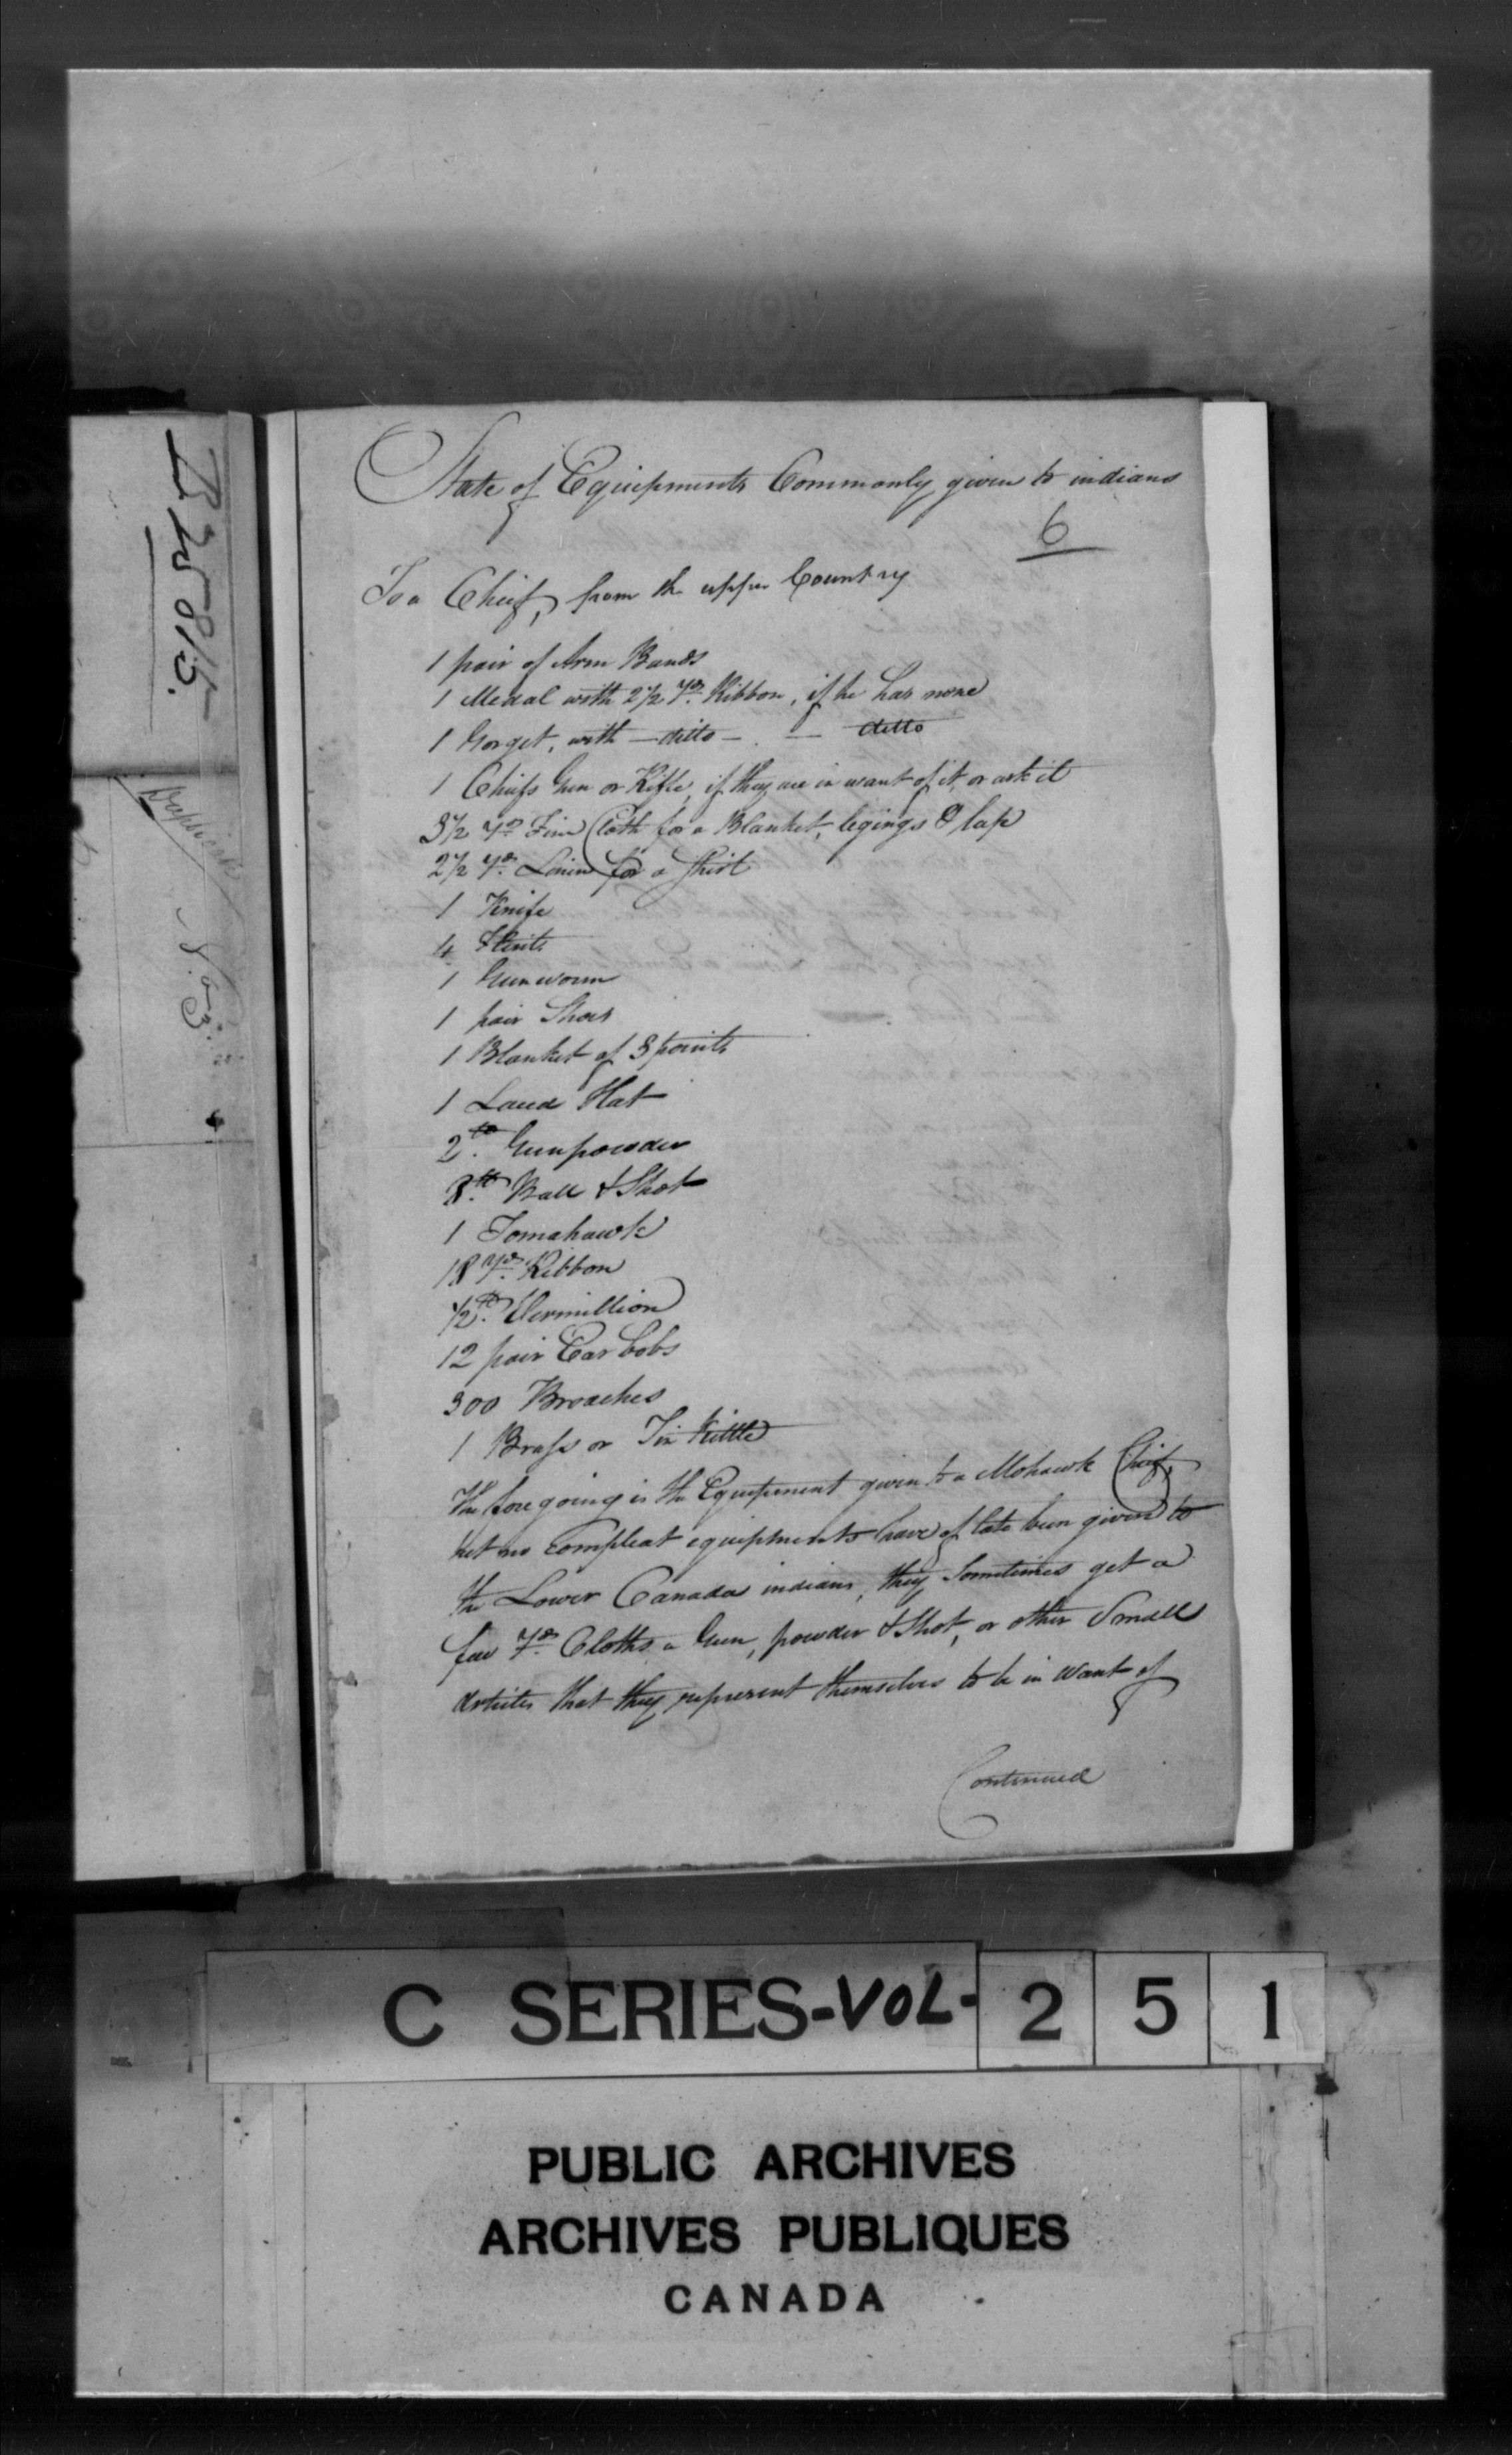 State of Equipments Commonly given to indians
6
To a Chief, from the upper Country
1 pair of Arm Bands
1 Medal with 2 1/2 Yds. Ribbon, if he has none
1 Gorget, with — ditto — . — ditto
1 Chiefs Gun or Rifle, if they are in want of it, or ask it
3 1/2 Yds. Fine Cloth for a Blanket, legings & lap
2 1/2 Yds. Linen for a Shirt
1 Knife
4 Flints
1 Gunworm
1 pair Shoes
1 Blanket of 3 points
1 Laced Hat
2 lb. Gunpowder
8 lb. Ball & Shot
1 Tomahawk
18 Yds. Ribbon
1/2 lb. Vermillion
12 pair Ear bobs
300 Broaches
1 Brass or Tin Kittle
The foregoing is the Equipment given to a Mohawk Chief,
but no compleat equipments have of late been given to
the Lower Canada indians, they Sometimes get a
few Yds. Cloths a Gun, powder & Shot, or other Small
Articles that they represent themselves to be in Want of
Continued
C SERIES-VOL- 2 5 1
PUBLIC ARCHIVES
ARCHIVES PUBLIQUES
CANADA